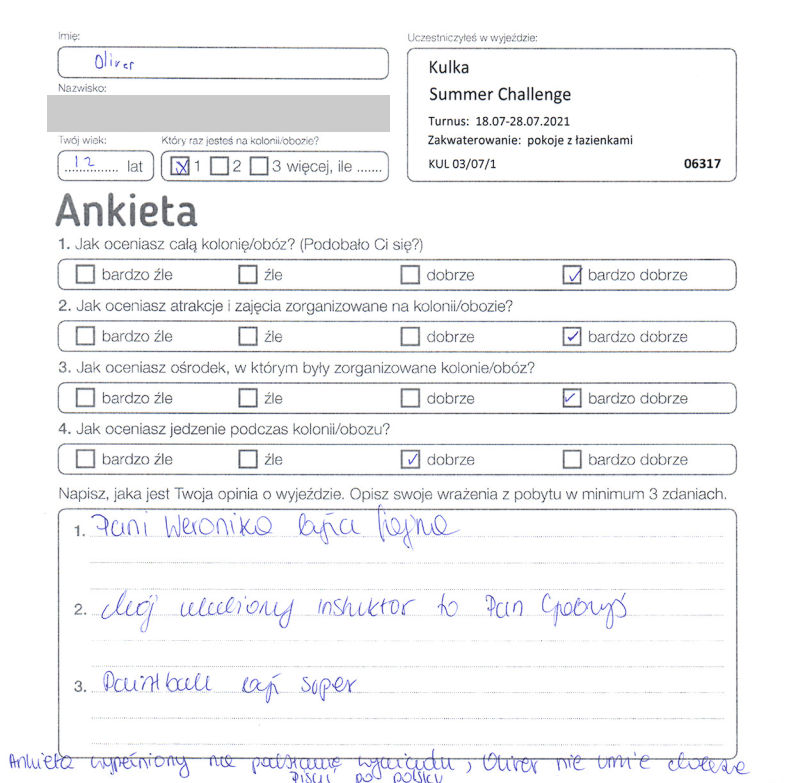 Imię:
Oliver
Uczestniczyłeś w wyjeździe:
Kulka
Summer Challenge
Turnus: 18.07-28.07.2021
Zakwaterowanie: pokoje z łazienkami
KUL 03/07/1 06317
Nazwisko:
Twój wiek:
12 lat
Który raz jesteś na kolonii/obozie?
1 2 3 więcej, ile .......
Ankieta
1. Jak oceniasz całą kolonię/obóz? (Podobało Ci się?)
bardzo źle źle dobrze bardzo dobrze
2. Jak oceniasz atrakcje i zajęcia zorganizowane na kolonii/obozie?
bardzo źle źle dobrze bardzo dobrze
3. Jak oceniasz ośrodek, w którym były zorganizowane kolonie/obóz?
bardzo źle źle dobrze bardzo dobrze
4. Jak oceniasz jedzenie podczas kolonii/obozu?
bardzo źle źle dobrze bardzo dobrze
Napisz, jaka jest Twoja opinia o wyjeździe. Opisz swoje wrażenia z pobytu w minimum 3 zdaniach.
1. Pani Weronika była fajna
2. Mój ulubiony instruktor to Pan
3. Paintball był super
Ankieta wypełniony na podstawie wywiadu, Oliver nie umie dobrze
pisać po polsku